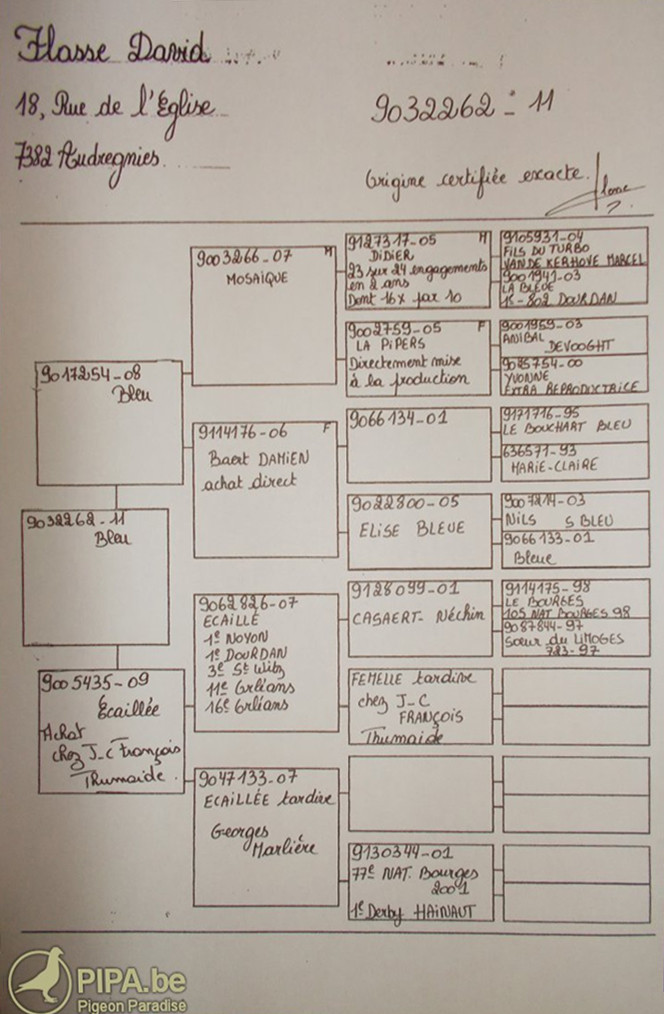 Flasse David
18, Rue de l'Eglise
9032262 - 11
7382 Audregnies
Origine certifiée exacte.
9003266-07 M
MOSAÏQUE
9127317-05 M
DIDIER
23 sur 24 engagements
en 2 ans
Dont 16x par 10
9105931-04
FILS DU TURBO
VANDEKERHOVE MARCEL
9001941-03
LA BLEUE
1e - 802 DOURDAN
9002759-05 F
LA PIPERS
Directement mise
à la production
9001959-03
ANIBAL
DEVOOGHT
9085754-00
YVONNE
EXTRA REPRODUCTRICE
9017254-08
Bleu
9114176-06 F
Baert DAMIEN
achat direct
9066134-01
9171716-95
LE BOUCHART BLEU
636571-93
MARIE-CLAIRE
9022800-05
ELISE BLEUE
9007214-03
NILS S BLEU
9066133-01
Bleue
9032262-11
Bleu
9062826-07
ECAILLÉ
1e NOYON
1e DOURDAN
3e St Witz
11e Orléans
16e Orléans
9128099-01
CASAERT-Néchin
9114175-98
LE BOURGES
105 NAT BOURGES 98
9087844-97
Sœur du LIMOGES
723-97
9005435-09
Écaillée
Achat
chez J-C François
Thumaide.
FEMELLE tardive
chez J-C
FRANÇOIS
Thumaide
9047133-07
ECAILLÉE tardive
Georges
Marlière
9130344-01
77e NAT. Bourges
2001
1e Derby HAINAUT
PIPA.be
Pigeon Paradise